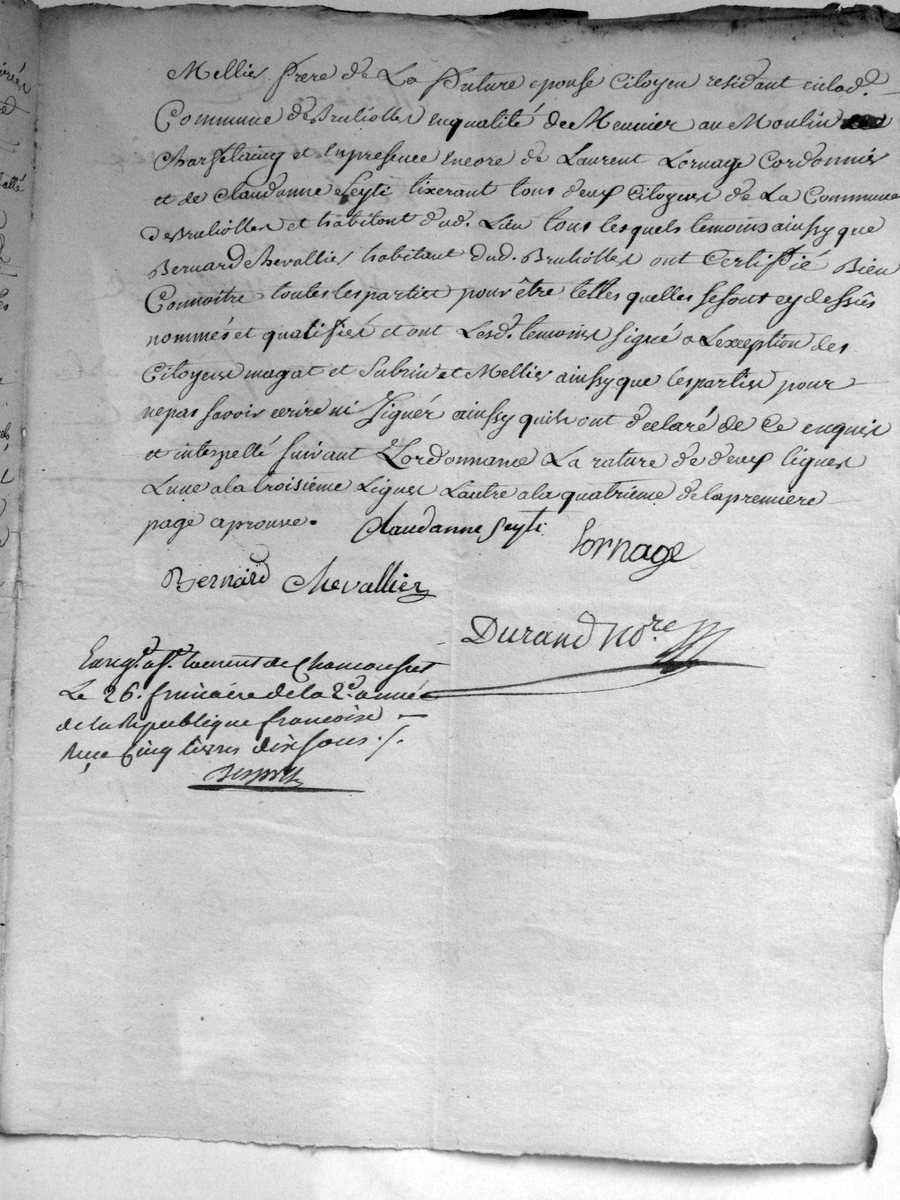 Mellier frere de La future epouse Citoyen residant enlad.e
Commune de Bruliolles en qualité de Meunier au Moulin
et en presence encore de Laurent Lornage Cordonnier
et de Claudanne Seyti tixerant tous deux Citoyens de La Commune
de Bruliolles et habitant dud. Lieu tous lesquels temoins ainssy que
Bernard Chevallier habitant dud. Bruliolles ont Certiffié Bien
Connoitre toutes les parties pour être telles quelles se sont cy dessûs
nommés et qualifiés et ont Lesd. temoins signé a Lexception des
Citoyens magat et Subrin et Mellier ainssy que les parties pour
ne pas savoir ecrire ni Signér ainssy quils ont declaré de Ce enquis
et interpellé suivant Lordonnance La rature de deux lignes
Lune a la troisieme Lignes Lautre a la quatrieme de la premiere
page aprouve. Claudanne Seyti Lornage
Bernard Chevallier
Durand No.re
Enreg.é a S.t Laurent de Chamousset
Le 26. frimaire de la 2.e année
de la Republique francoise
Reçu Cinq livres dix sous